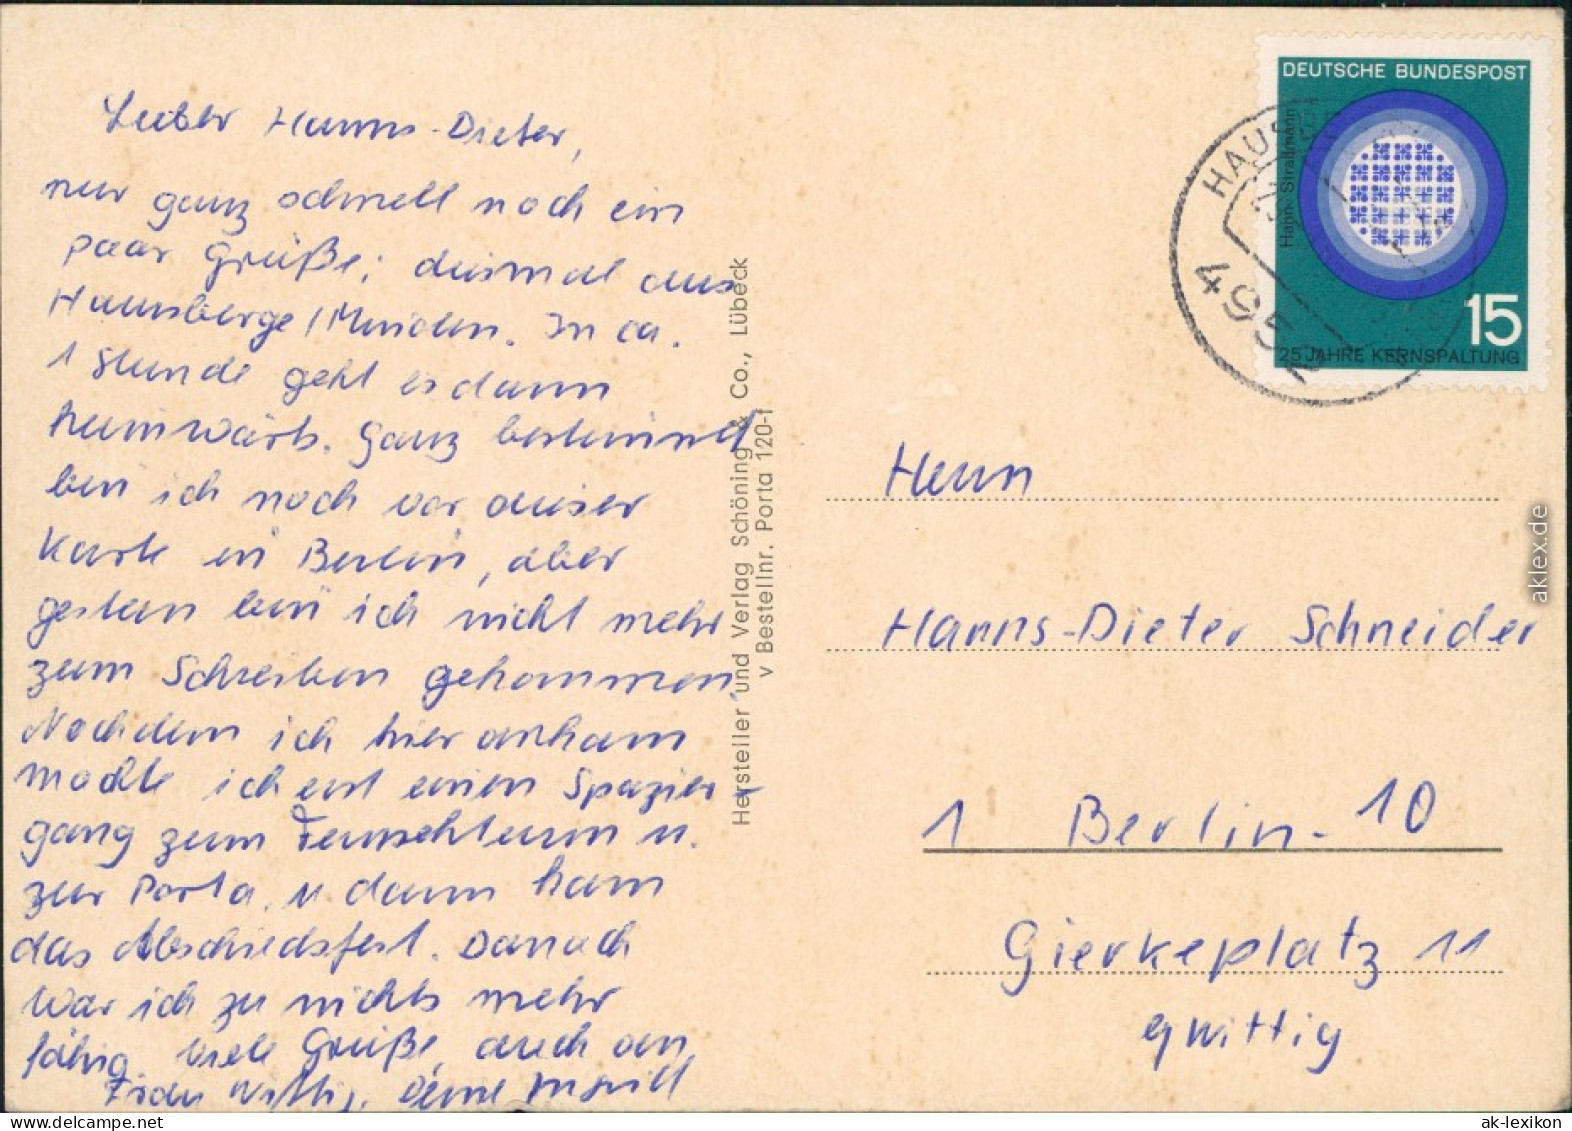 Lieber Hanns-Dieter,
nur ganz schnell noch ein
paar Grüße; diesmal aus
Hausberge/Minden. In ca.
1 Stunde geht es dann
heimwärts. Ganz bestimmt
bin ich noch vor dieser
Karte in Berlin, aber
gestern bin ich nicht mehr
zum Schreiben gekommen.
Nachdem ich hier ankam
machte ich erst einen Spazier-
gang zum Fernsehturm u.
zur Porta, u. dann kam
das Abschiedsfest. Danach
war ich zu nichts mehr
fähig. Viele Grüße, auch an
Wittig. Deine
Hersteller und Verlag Schöning & Co., Lübeck
v Bestellnr. Porta 120-f
DEUTSCHE BUNDESPOST
Hahn · Straßmann
15
25 JAHRE KERNSPALTUNG
HAUSBERGE
4952
Herrn
Hanns-Dieter Schneider
1 Berlin-10
Gierkeplatz 11
b/ Wittig
aklex.de
ak-ansichtskarten.de
ak-lexikon